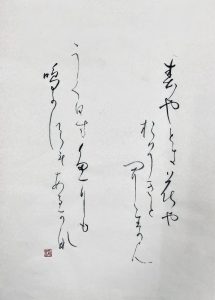 春やとき花や
おそきと
聞きわかん
うく日すたにも
鳴かすもあるかな